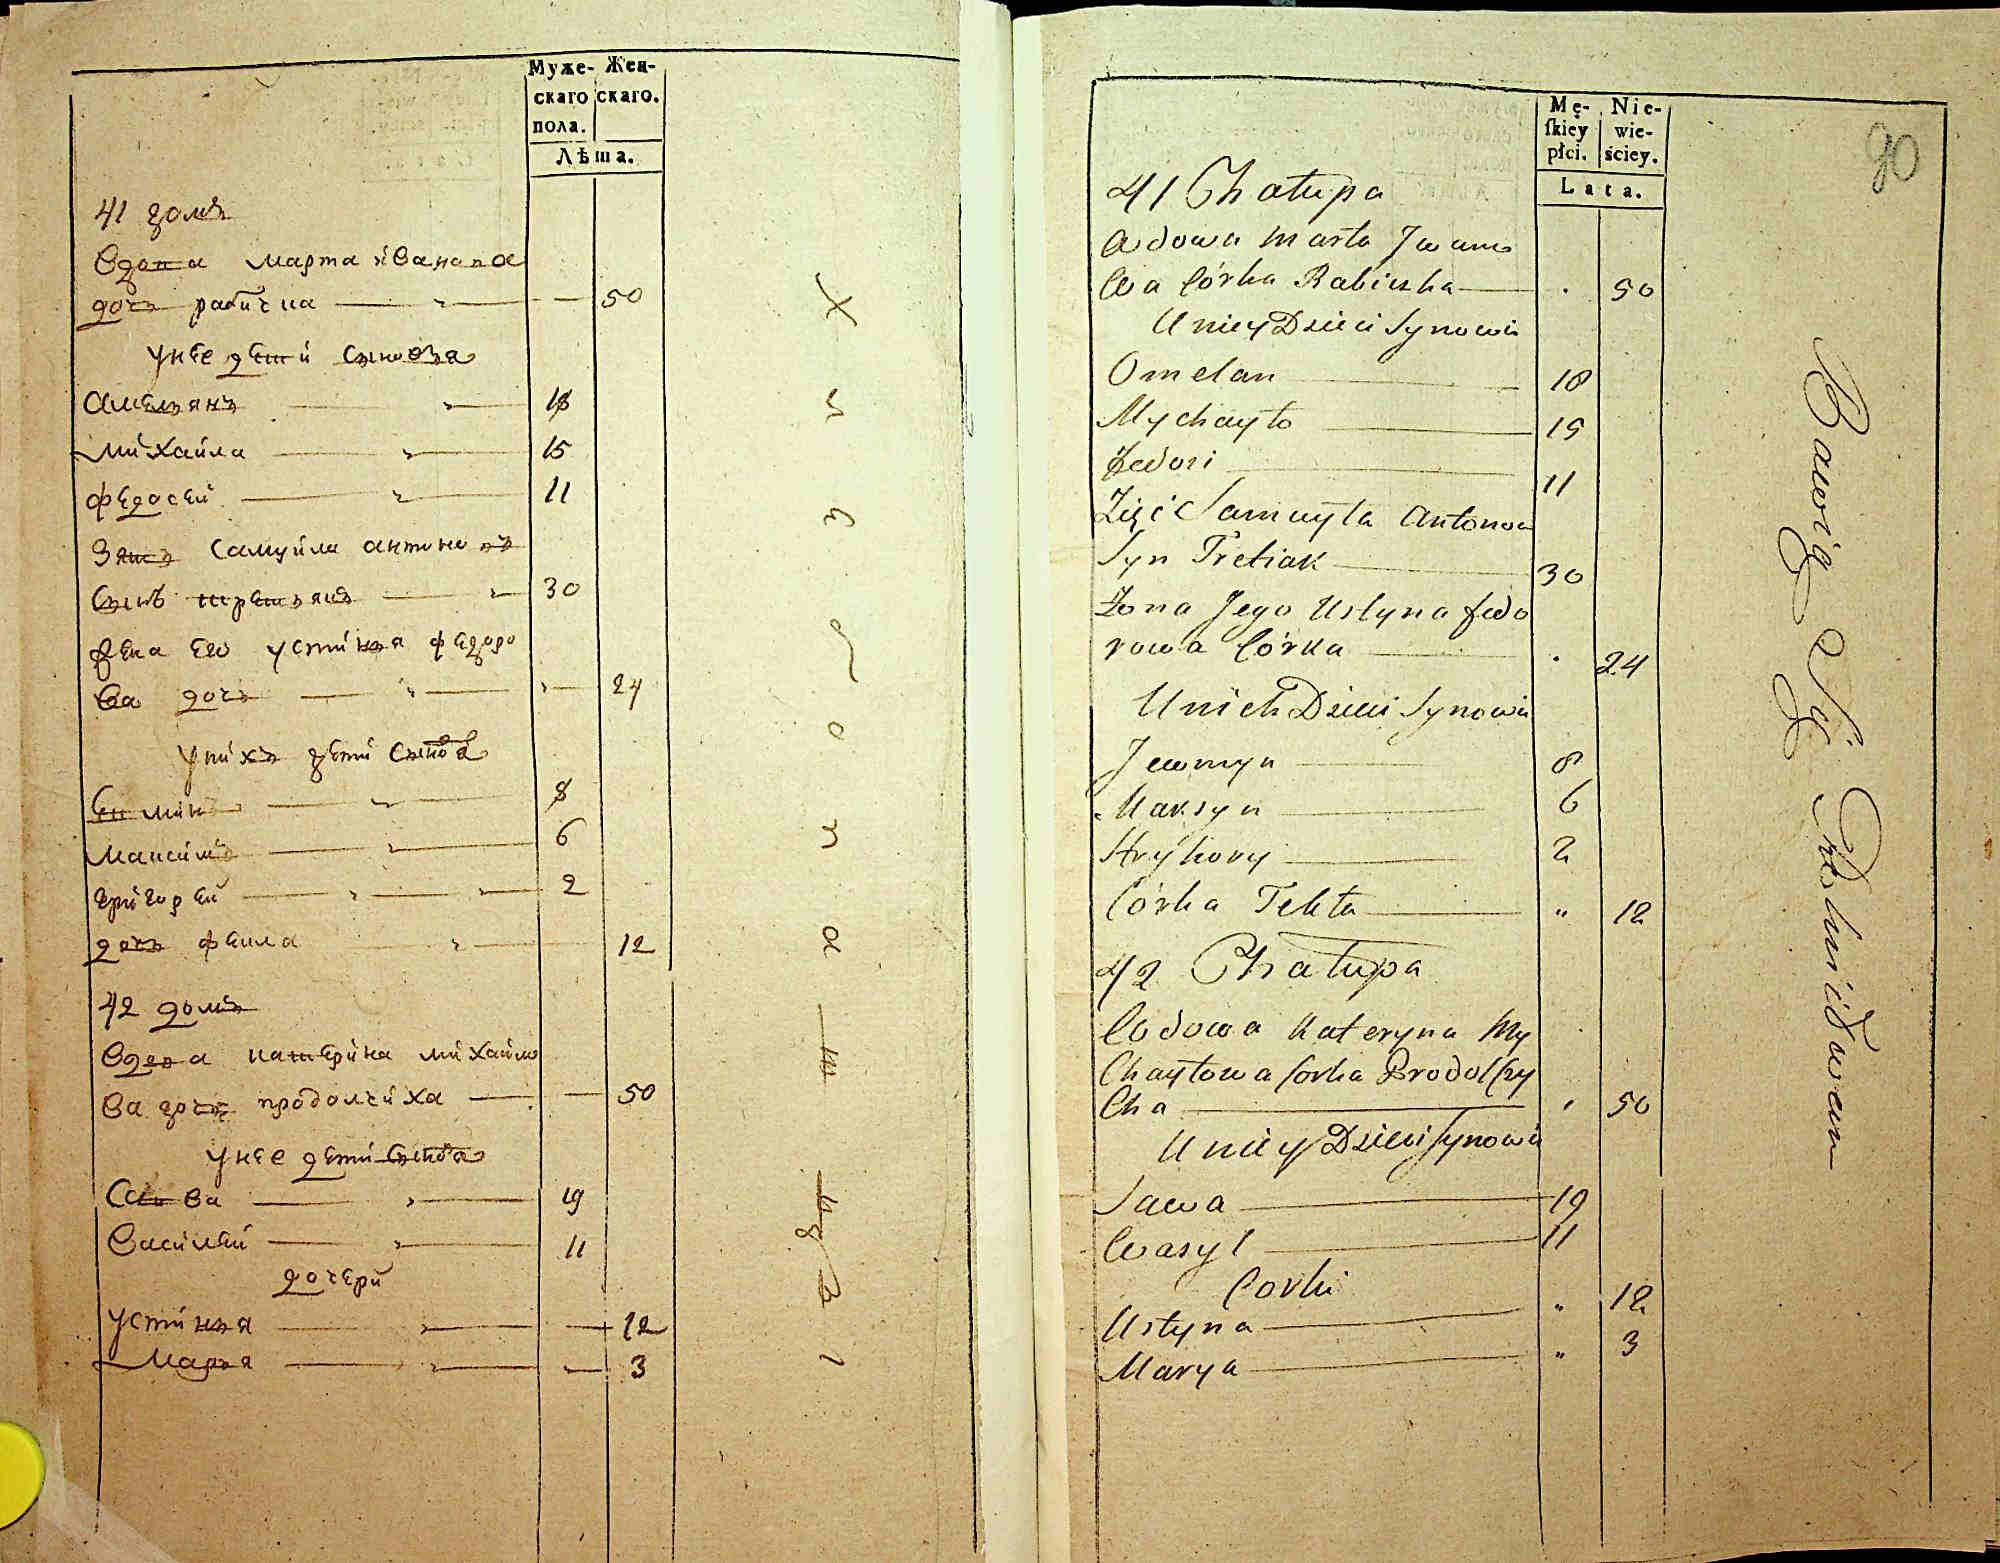 Муже- Жен-
скаго скаго.
пола.
Лѣта.
41 домъ
Вдова марта ивано́ва
дочь рабичка 50
у нее дети сыновя
Амельянъ 18
михайла 15
федосей 11
Зять Самуйла антоновъ
Сынъ третьякъ 30
жена его устинья федоро
ва дочь 24
у нихъ дети сынова
8
максимъ 6
григорей 2
дочь фекла 12
42 домъ
Вдова катерина михайло
ва дочь 50
у нее дети сынова
Савва 19
Василей 11
дочери
устинья 12
марья 3
Mę- Nie-
skiey wie-
płci. ściey.
Lata.
90
41 Chałupa
Wdowa Marta Iwano
wa Córka Rabiczka 50
U niey Dzieci Synowie
Omelan 18
Mychayło 15
Fedosi 11
Zięć Samuyła Antonow
Syn Tretiak 30
Żona Jego Ustyna Fedo
rowa Córka 24
U nich Dzieci Synowie
Jewmyn 8
Maksym 6
Hryhory 2
Córka Tekla 12
42 Chałupa
Wdowa Kateryna My
Chayłowa Corka
Cha 50
U niey Dzieci Synowie
Sawa 19
Wasyl 11
Corki
Ustyna 12
Marya 3
Bawią Się